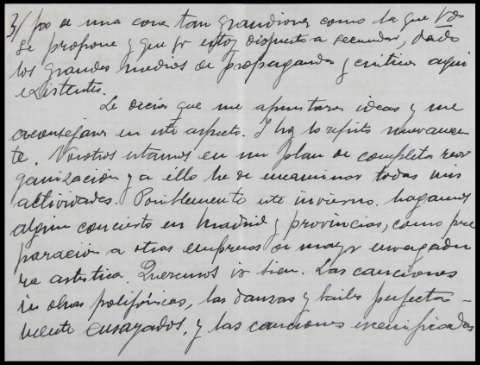 3/ po de una cosa tan grandiosa como la que Vd.
se propone y que yo estoy dispuesto a secundar, dado
los grandes medios de propaganda y crítica aquí
existentes.
Le decía que me apuntara ideas y me
aconsejara en este aspecto. Y hoy lo repito nuevamen
te. Nosotros estamos en un plan de completa reor
ganización y a ello he de encaminar todas mis
actividades. Posiblemente este invierno hagamos
algún concierto en Madrid y provincias, como pre
paración a otras empresas de mayor envergadu
ra artística. Queremos ir bien. Las canciones
en obras polifónicas, las danzas y bailes perfecta-
mente ensayados, y las canciones escenificadas